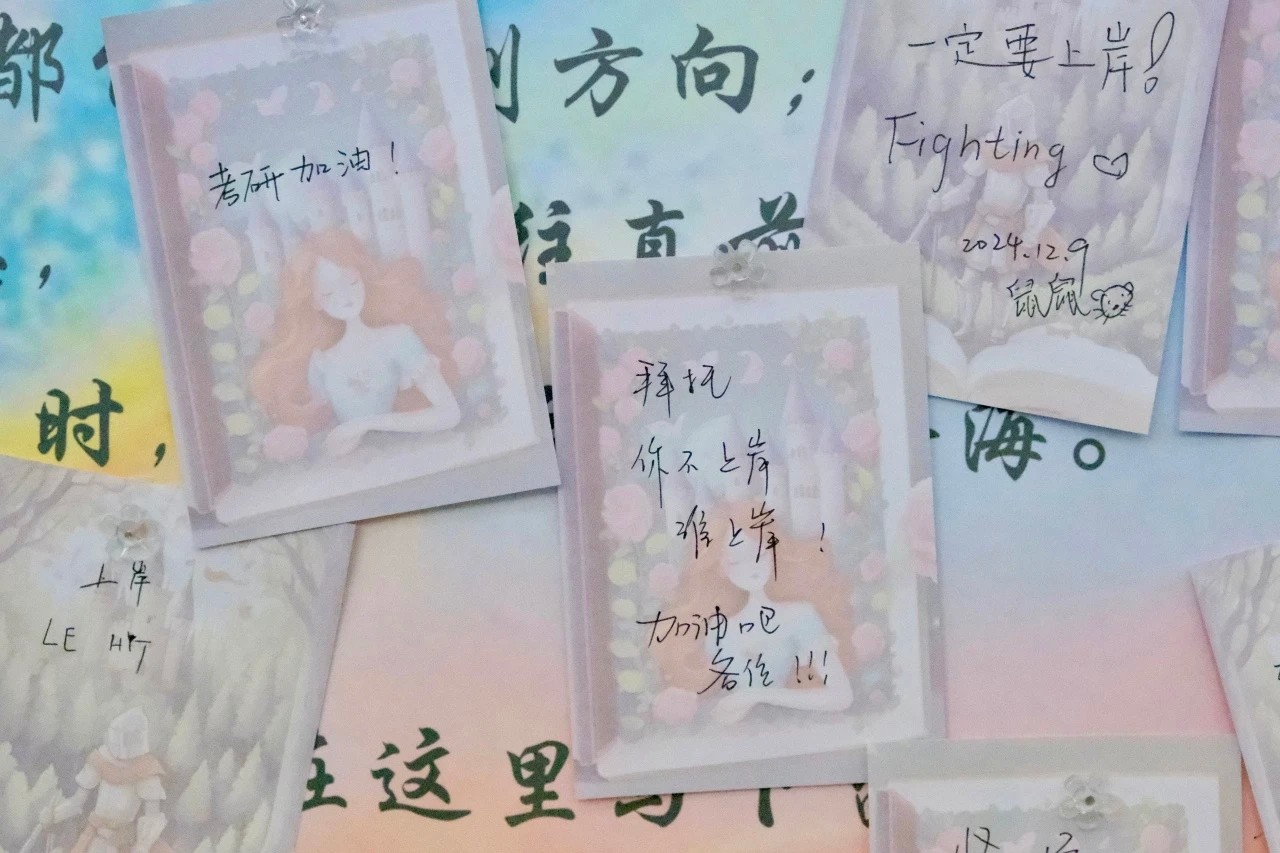 都
方向；
考研加油！
一定要上岸！
Fighting
2024.12.9
鼠鼠
往直前
拜托
你不上岸
谁上岸！
加油吧
各位!!!
时，
海。
上岸
LE HT
在这里写下